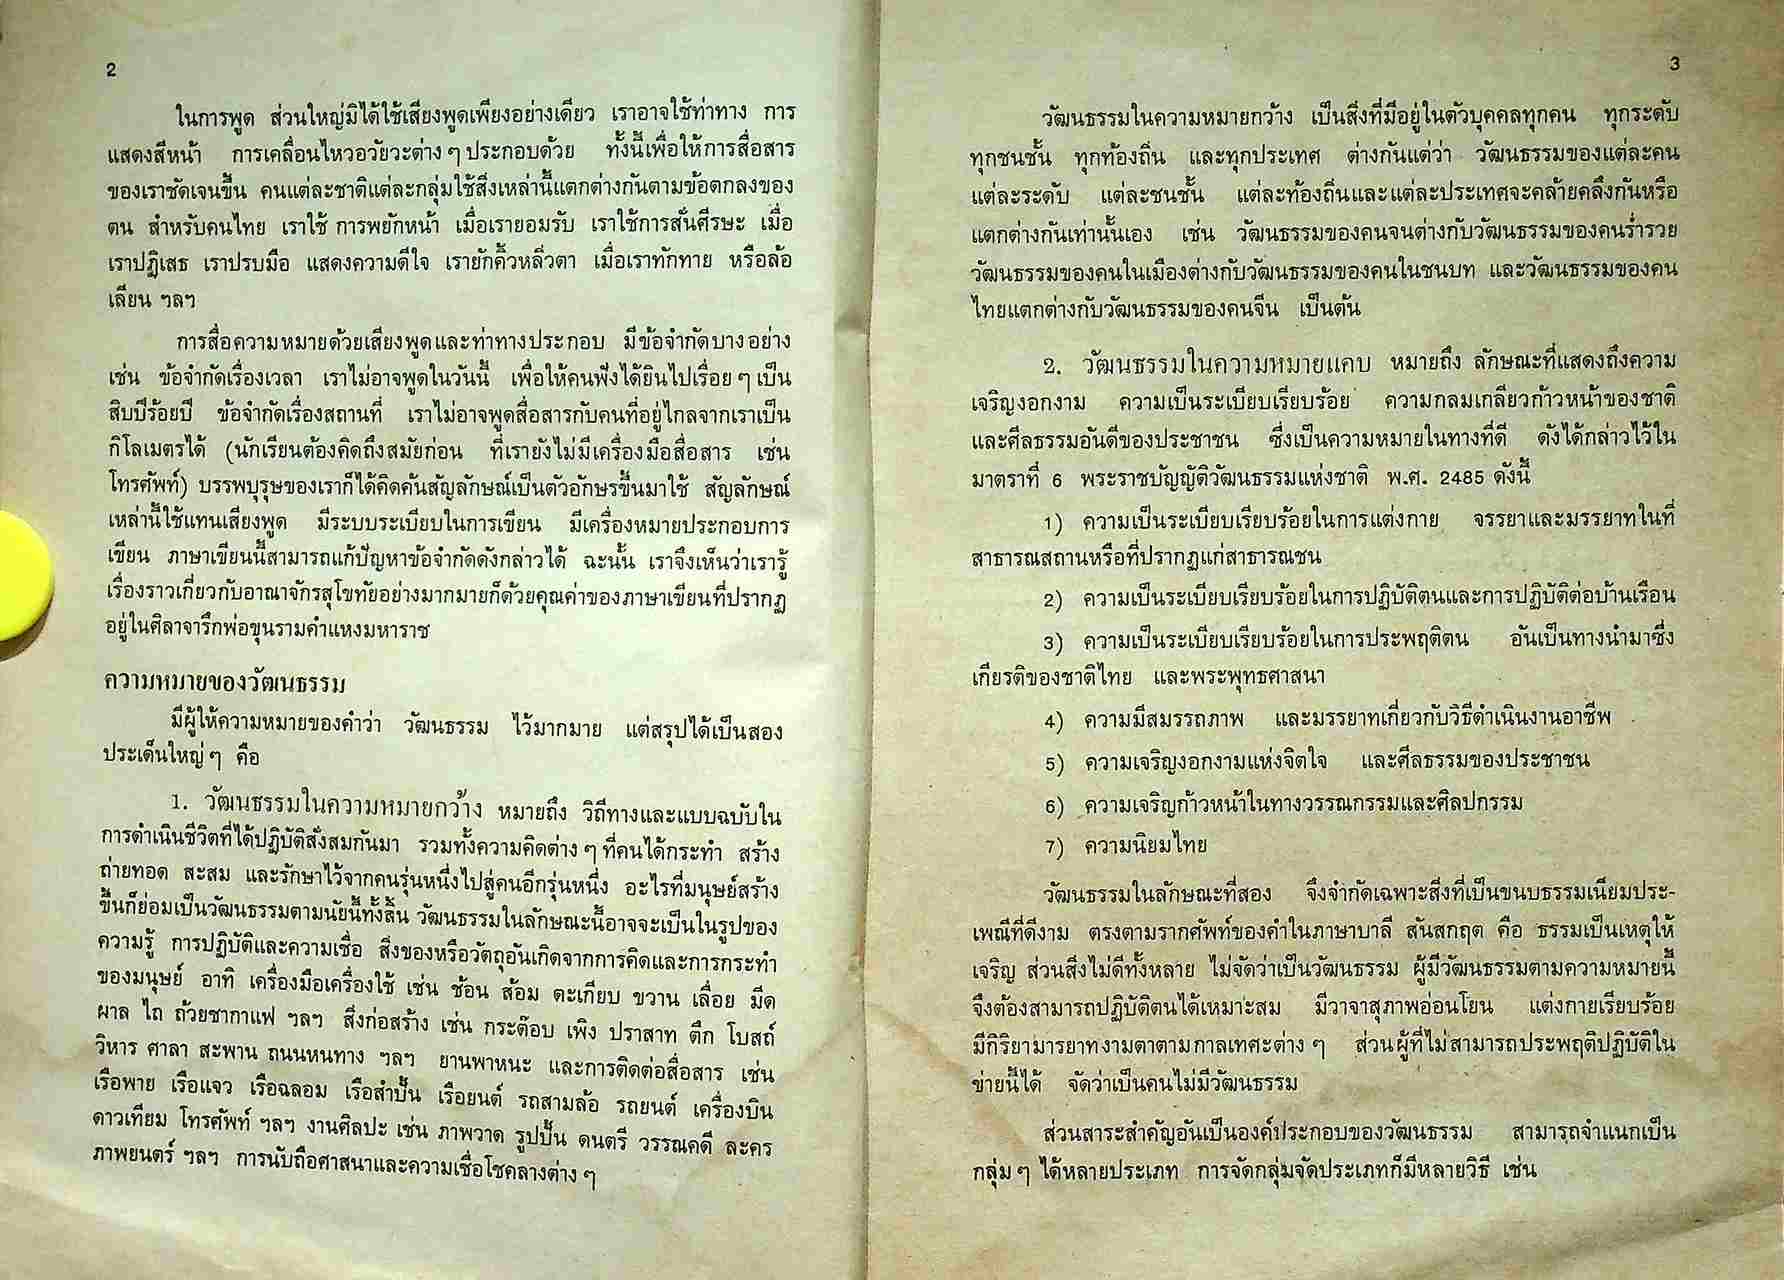 2
ในการพูด ส่วนใหญ่มิได้ใช้เสียงพูดเพียงอย่างเดียว เราอาจใช้ท่าทาง การ
แสดงสีหน้า การเคลื่อนไหวอวัยวะต่าง ๆ ประกอบด้วย ทั้งนี้เพื่อให้การสื่อสาร
ของเราชัดเจนขึ้น คนแต่ละชาติแต่ละกลุ่มใช้สิ่งเหล่านี้แตกต่างกันตามข้อตกลงของ
ตน สำหรับคนไทย เราใช้ การพยักหน้า เมื่อเรายอมรับ เราใช้การสั่นศีรษะ เมื่อ
เราปฏิเสธ เราปรบมือ แสดงความดีใจ เรายักคิ้วหลิ่วตา เมื่อเราทักทาย หรือล้อ
เลียน ฯลฯ
การสื่อความหมายด้วยเสียงพูดและท่าทางประกอบ มีข้อจำกัดบางอย่าง
เช่น ข้อจำกัดเรื่องเวลา เราไม่อาจพูดในวันนี้ เพื่อให้คนฟังได้ยินไปเรื่อย ๆ เป็น
สิบปีร้อยปี ข้อจำกัดเรื่องสถานที่ เราไม่อาจพูดสื่อสารกับคนที่อยู่ไกลจากเราเป็น
กิโลเมตรได้ (นักเรียนต้องคิดถึงสมัยก่อน ที่เรายังไม่มีเครื่องมือสื่อสาร เช่น
โทรศัพท์) บรรพบุรุษของเราก็ได้คิดค้นสัญลักษณ์เป็นตัวอักษรขึ้นมาใช้ สัญลักษณ์
เหล่านี้ใช้แทนเสียงพูด มีระบบระเบียบในการเขียน มีเครื่องหมายประกอบการ
เขียน ภาษาเขียนนี้สามารถแก้ปัญหาข้อจำกัดดังกล่าวได้ ฉะนั้น เราจึงเห็นว่าเรารู้
เรื่องราวเกี่ยวกับอาณาจักรสุโขทัยอย่างมากมายก็ด้วยคุณค่าของภาษาเขียนที่ปรากฏ
อยู่ในศิลาจารึกพ่อขุนรามคำแหงมหาราช
ความหมายของวัฒนธรรม
มีผู้ให้ความหมายของคำว่า วัฒนธรรม ไว้มากมาย แต่สรุปได้เป็นสอง
ประเด็นใหญ่ ๆ คือ
1. วัฒนธรรมในความหมายกว้าง หมายถึง วิถีทางและแบบฉบับใน
การดำเนินชีวิตที่ได้ปฏิบัติสั่งสมกันมา รวมทั้งความคิดต่าง ๆ ที่คนได้กระทำ สร้าง
ถ่ายทอด สะสม และรักษาไว้จากคนรุ่นหนึ่งไปสู่คนอีกรุ่นหนึ่ง อะไรที่มนุษย์สร้าง
ขึ้นก็ย่อมเป็นวัฒนธรรมตามนัยนี้ทั้งสิ้น วัฒนธรรมในลักษณะนี้อาจจะเป็นในรูปของ
ความรู้ การปฏิบัติและความเชื่อ สิ่งของหรือวัตถุอันเกิดจากการคิดและการกระทำ
ของมนุษย์ อาทิ เครื่องมือเครื่องใช้ เช่น ช้อน ส้อม ตะเกียบ ขวาน เลื่อย มีด
ผาล ไถ ถ้วยชากาแฟ ฯลฯ สิ่งก่อสร้าง เช่น กระต๊อบ เพิง ปราสาท ตึก โบสถ์
วิหาร ศาลา สะพาน ถนนหนทาง ฯลฯ ยานพาหนะ และการติดต่อสื่อสาร เช่น
เรือพาย เรือแจว เรือฉลอม เรือสำปั้น เรือยนต์ รถสามล้อ รถยนต์ เครื่องบิน
ดาวเทียม โทรศัพท์ ฯลฯ งานศิลปะ เช่น ภาพวาด รูปปั้น ดนตรี วรรณคดี ละคร
ภาพยนตร์ ฯลฯ การนับถือศาสนาและความเชื่อโชคลางต่าง ๆ
3
วัฒนธรรมในความหมายกว้าง เป็นสิ่งที่มีอยู่ในตัวบุคคลทุกคน ทุกระดับ
ทุกชนชั้น ทุกท้องถิ่น และทุกประเทศ ต่างกันแต่ว่า วัฒนธรรมของแต่ละคน
แต่ละระดับ แต่ละชนชั้น แต่ละท้องถิ่นและแต่ละประเทศจะคล้ายคลึงกันหรือ
แตกต่างกันเท่านั้นเอง เช่น วัฒนธรรมของคนจนต่างกับวัฒนธรรมของคนร่ำรวย
วัฒนธรรมของคนในเมืองต่างกับวัฒนธรรมของคนในชนบท และวัฒนธรรมของคน
ไทยแตกต่างกับวัฒนธรรมของคนจีน เป็นต้น
2. วัฒนธรรมในความหมายแคบ หมายถึง ลักษณะที่แสดงถึงความ
เจริญงอกงาม ความเป็นระเบียบเรียบร้อย ความกลมเกลียวก้าวหน้าของชาติ
และศีลธรรมอันดีของประชาชน ซึ่งเป็นความหมายในทางที่ดี ดังได้กล่าวไว้ใน
มาตราที่ 6 พระราชบัญญัติวัฒนธรรมแห่งชาติ พ.ศ. 2485 ดังนี้
1) ความเป็นระเบียบเรียบร้อยในการแต่งกาย จรรยาและมรรยาทในที่
สาธารณสถานหรือที่ปรากฏแก่สาธารณชน
2) ความเป็นระเบียบเรียบร้อยในการปฏิบัติตนและการปฏิบัติต่อบ้านเรือน
3) ความเป็นระเบียบเรียบร้อยในการประพฤติตน อันเป็นทางนำมาซึ่ง
เกียรติของชาติไทย และพระพุทธศาสนา
4) ความมีสมรรถภาพ และมรรยาทเกี่ยวกับวิธีดำเนินงานอาชีพ
5) ความเจริญงอกงามแห่งจิตใจ และศีลธรรมของประชาชน
6) ความเจริญก้าวหน้าในทางวรรณกรรมและศิลปกรรม
7) ความนิยมไทย
วัฒนธรรมในลักษณะที่สอง จึงจำกัดเฉพาะสิ่งที่เป็นขนบธรรมเนียมประ-
เพณีที่ดีงาม ตรงตามรากศัพท์ของคำในภาษาบาลี สันสกฤต คือ ธรรมเป็นเหตุให้
เจริญ ส่วนสิ่งไม่ดีทั้งหลาย ไม่จัดว่าเป็นวัฒนธรรม ผู้มีวัฒนธรรมตามความหมายนี้
จึงต้องสามารถปฏิบัติตนได้เหมาะสม มีวาจาสุภาพอ่อนโยน แต่งกายเรียบร้อย
มีกิริยามารยาทงามตาตามกาลเทศะต่าง ๆ ส่วนผู้ที่ไม่สามารถประพฤติปฏิบัติใน
ข่ายนี้ได้ จัดว่าเป็นคนไม่มีวัฒนธรรม
ส่วนสาระสำคัญอันเป็นองค์ประกอบของวัฒนธรรม สามารถจำแนกเป็น
กลุ่ม ๆ ได้หลายประเภท การจัดกลุ่มจัดประเภทก็มีหลายวิธี เช่น